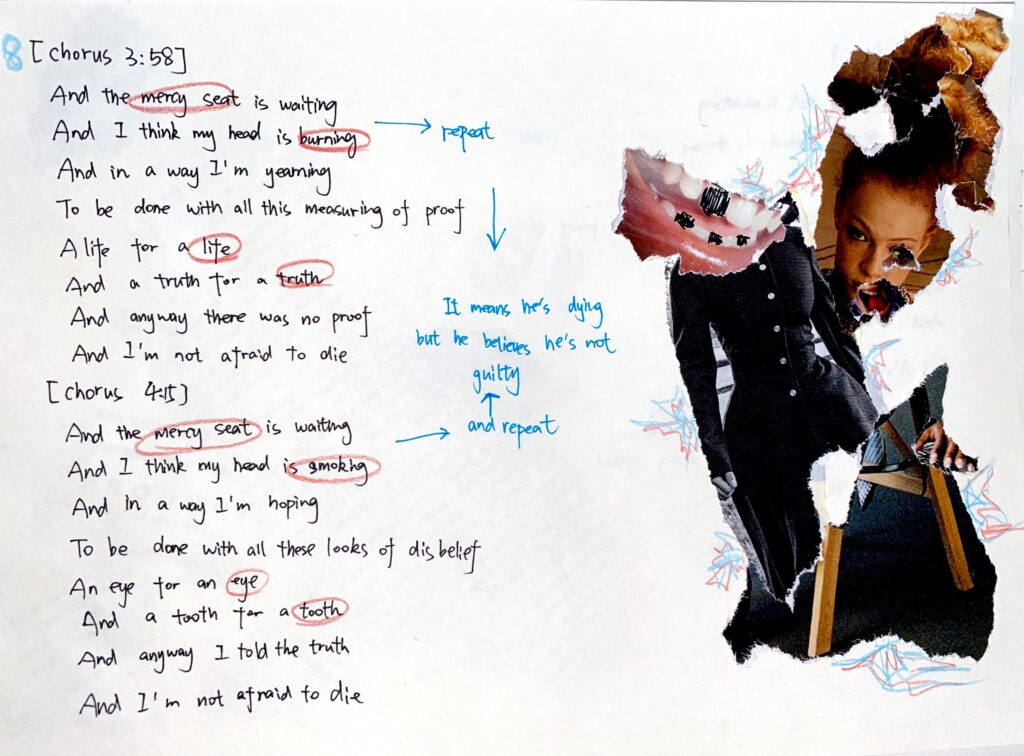 8 [chorus 3:58]
And the mercy seat is waiting
And I think my head is burning
And in a way I'm yearning
To be done with all this measuring of proof
A life for a life
And a truth for a truth
And anyway there was no proof
And I'm not afraid to die
[chorus 4:15]
And the mercy seat is waiting
And I think my head is smoking
And in a way I'm hoping
To be done with all these looks of disbelief
An eye for an eye
And a tooth for a tooth
And anyway I told the truth
And I'm not afraid to die
repeat
It means he's dying
but he believes he's not
guilty
and repeat